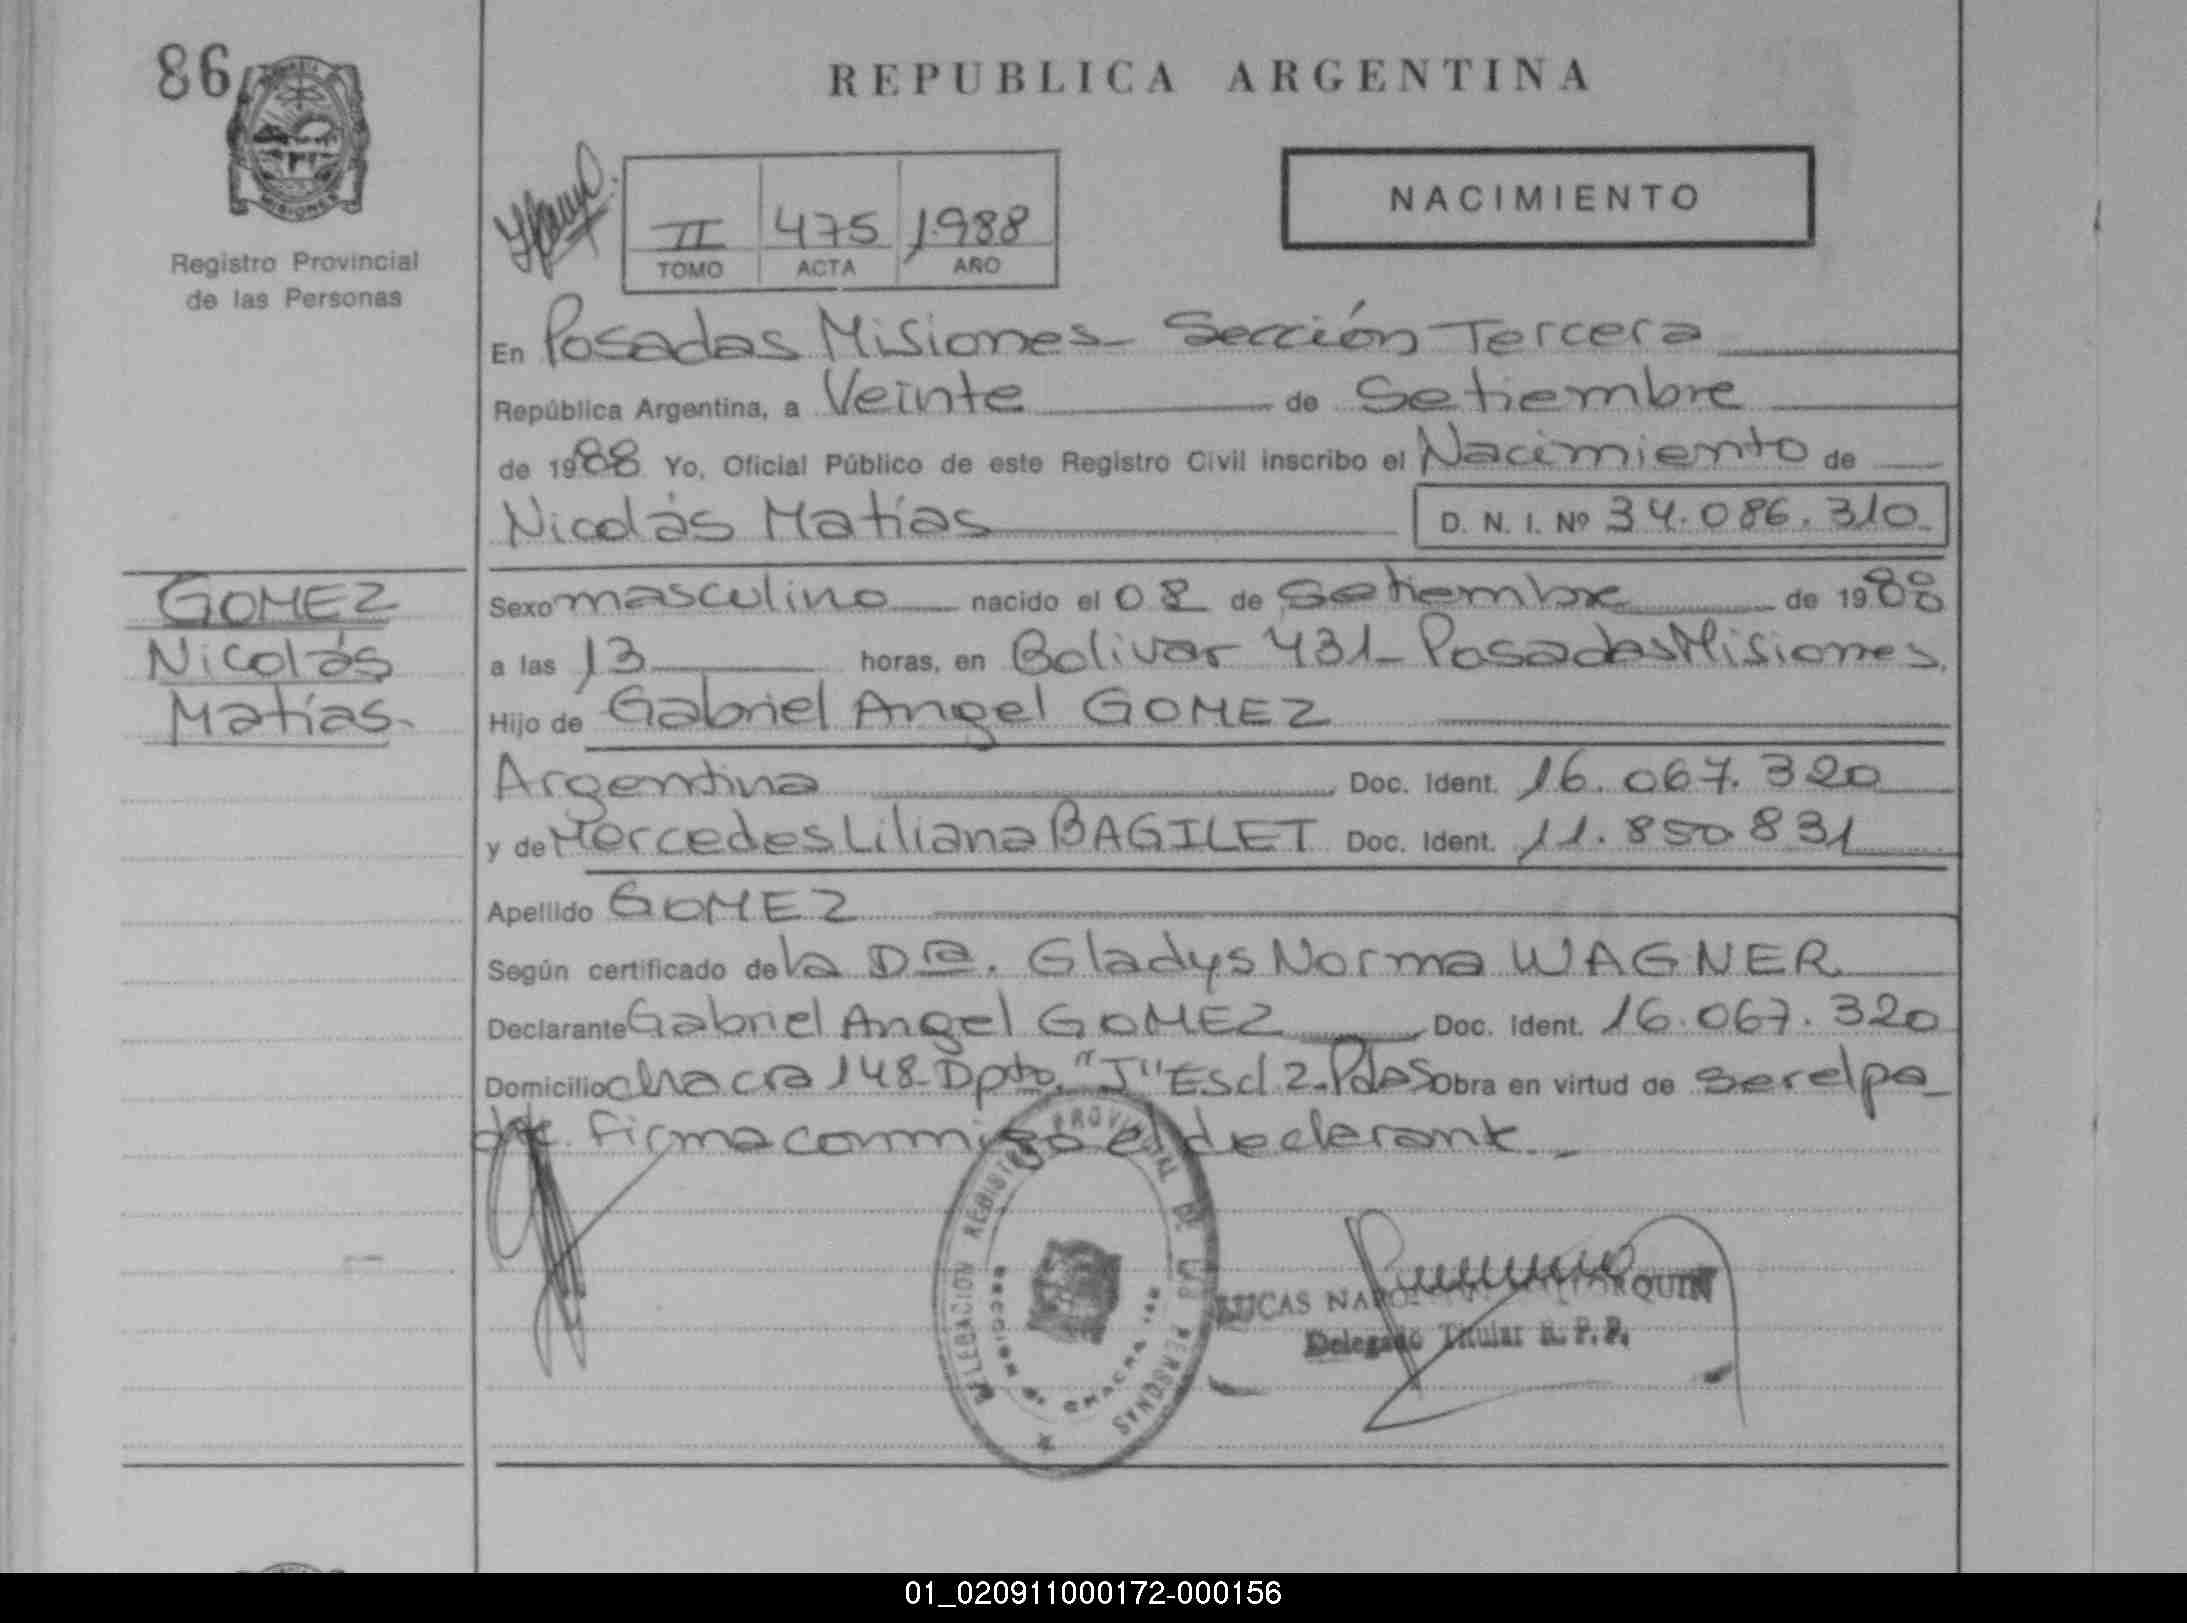 86
REPUBLICA ARGENTINA
PROVINCIA
MISIONES
Registro Provincial
de las Personas
II 475 1988
TOMO ACTA AÑO
NACIMIENTO
En Posadas Misiones - Sección Tercera
República Argentina, a Veinte de Setiembre
de 1988 Yo, Oficial Público de este Registro Civil inscribo el Nacimiento de
Nicolás Matías D. N. I. Nº 34.086.310
GOMEZ
Nicolás
Matías.
Sexo masculino nacido el 08 de Setiembre de 1988
a las 13 horas, en Bolivar 431- Posadas Misiones.
Hijo de Gabriel Angel GOMEZ
Argentina Doc. Ident. 16.067.320
y de Mercedes Liliana BAGILET Doc. Ident. 11.850.831
Apellido GOMEZ
Según certificado de la Dra. Gladys Norma WAGNER
Declarante Gabriel Angel GOMEZ Doc. Ident. 16.067.320
Domicilio chacra 148- Dpto. "J" Escl 2- Pdas Obra en virtud de ser el pa
dre. firma conmigo el declarante.
DELEGACION REGISTRO PROVINCIAL DE LAS PERSONAS
SECCION 3ª CHACRA 148
LUCAS
Delegado Titular R. P. P.
01_020911000172-000156